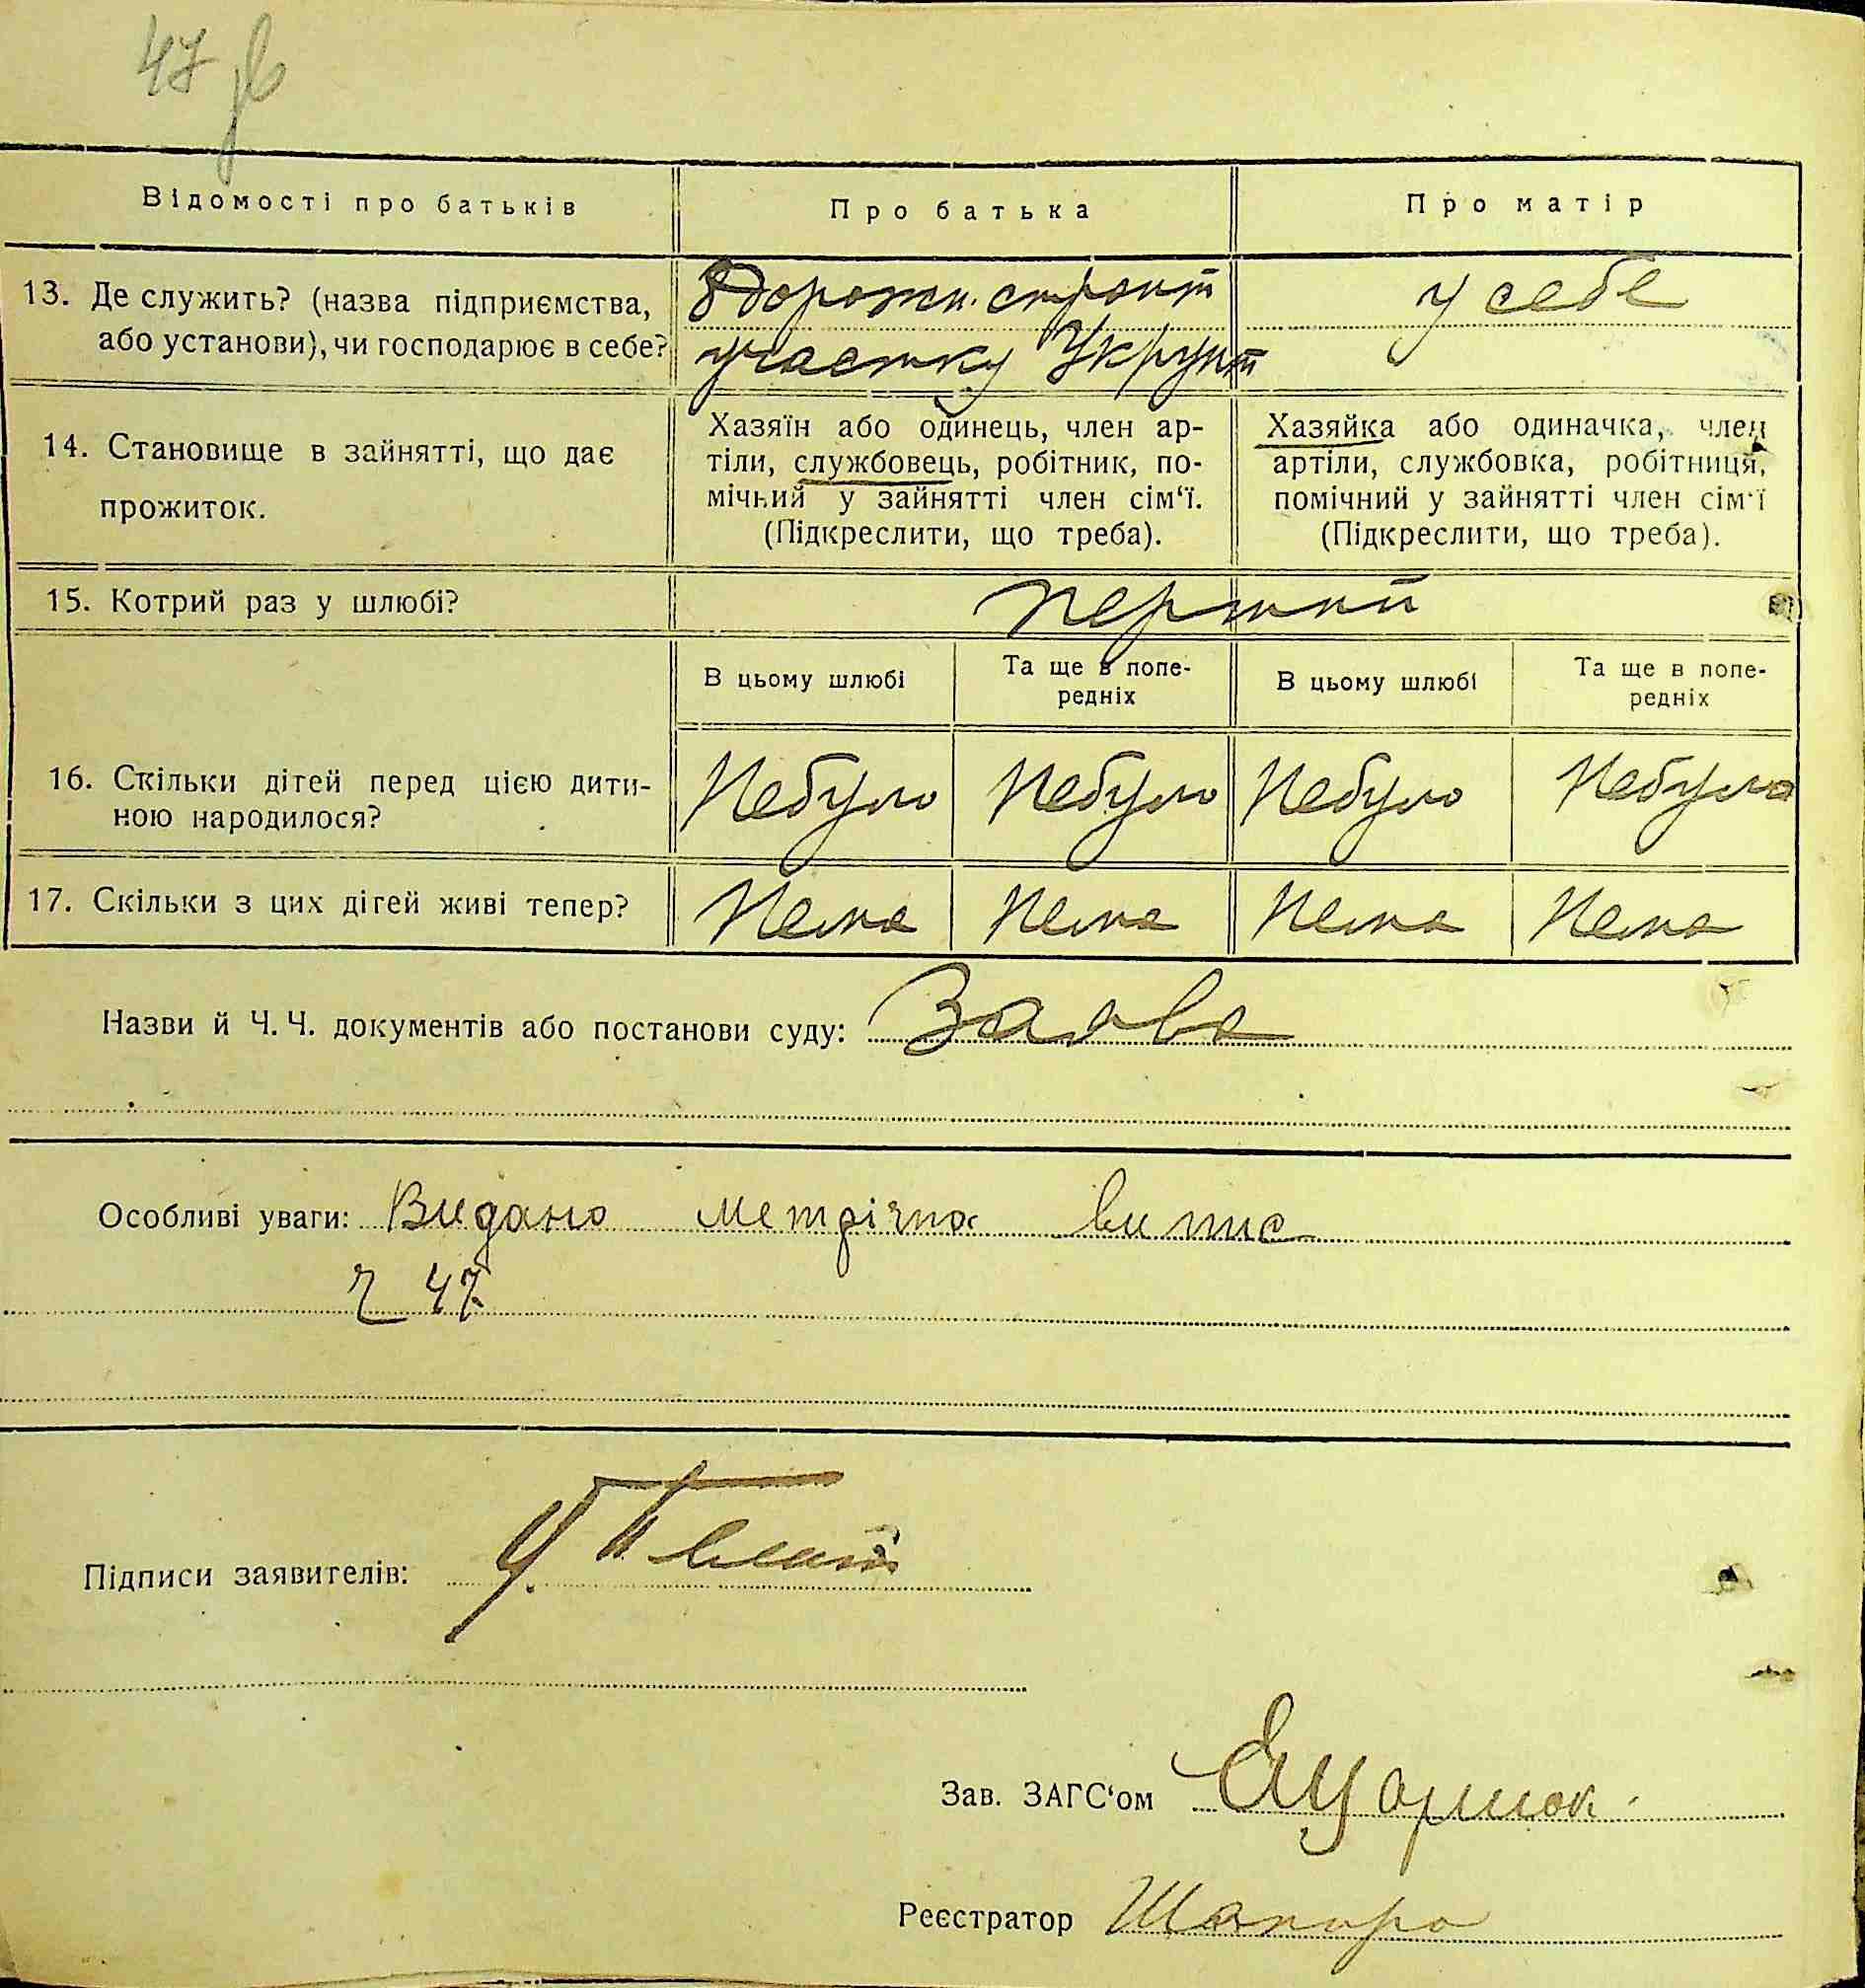 47
Відомості про батьків
Про батька
Про матір
13. Де служить? (назва підприємства,
або установи), чи господарює в себе?
8 дорожн. строит
участку
у себе
14. Становище в зайнятті, що дає
прожиток.
Хазяїн або одинець, член ар-
тіли, службовець, робітник, по-
мічний у зайнятті член сім‘ї.
(Підкреслити, що треба).
Хазяйка або одиначка, член
артіли, службовка, робітниця,
помічний у зайнятті член сім‘ї
(Підкреслити, що треба).
15. Котрий раз у шлюбі?
перший
В цьому шлюбі
Та ще в попе-
редніх
В цьому шлюбі
Та ще в попе-
редніх
16. Скільки дітей перед цією дити-
ною народилося?
Небуло
Небуло
Небуло
Небуло
17. Скільки з цих дітей живі тепер?
Нема
Нема
Нема
Нема
Назви й Ч. Ч. документів або постанови суду: Заява
Особливі уваги: Видано метрічна випис
ч 47
Підписи заявителів:
Зав. ЗАГС‘ом
Реєстратор Шапиро